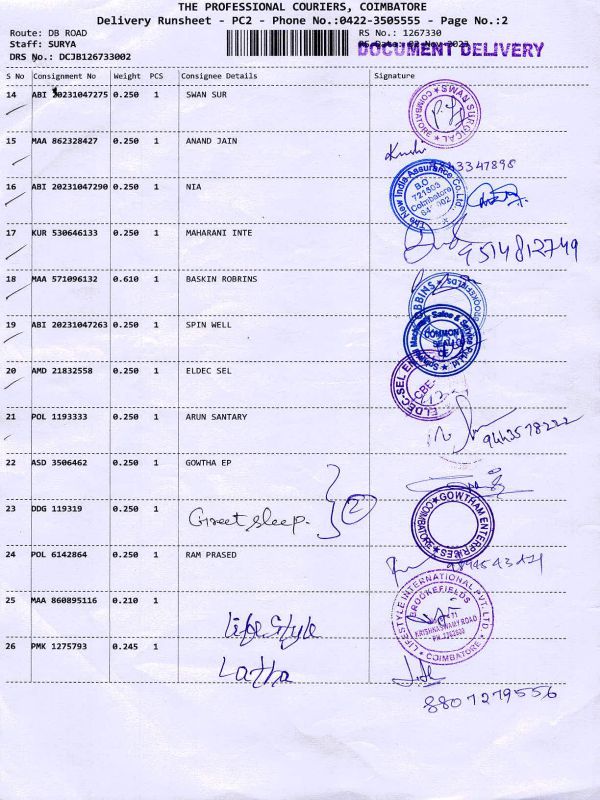 THE PROFESSIONAL COURIERS, COIMBATORE
Delivery Runsheet - PC2 - Phone No.:0422-3505555 - Page No.:2
Route: DB ROAD
RS No.: 1267330
Staff: SURYA
DOCUMENT DELIVERY
DRS No.: DCJB126733002
S No Consignment No Weight PCS Consignee Details Signature
14 ABI 20231047275 0.250 1 SWAN SUR
SWAN SURGICAL COIMBATORE
15 MAA 862328427 0.250 1 ANAND JAIN
16 ABI 20231047290 0.250 1 NIA
The New India Assurance Co.Ltd.
B.O.
721803
Coimbatore
17 KUR 530646133 0.250 1 MAHARANI INTE
9514812749
18 MAA 571096132 0.610 1 BASKIN ROBRINS
19 ABI 20231047263 0.250 1 SPIN WELL
Machinery Sales & Service Pvt.Ltd.
COMMON
SEAL OF
20 AMD 21832558 0.250 1 ELDEC SEL
ELDEC-SEL
CBE-
21 POL 1193333 0.250 1 ARUN SANTARY
22 ASD 3506462 0.250 1 GOWTHA EP
23 DDG 119319 0.250 1 Greet sleep. 2
GOWTHAM ENTERPRISES COIMBATORE
24 POL 6142864 0.250 1 RAM PRASED
25 MAA 860895116 0.210 1 Life Style
LIFESTYLE INTERNATIONAL PVT. LTD. COIMBATORE
BROOKEFIELDS
KRISHNASWAMY ROAD
26 PMK 1275793 0.245 1 Latha
8807279556